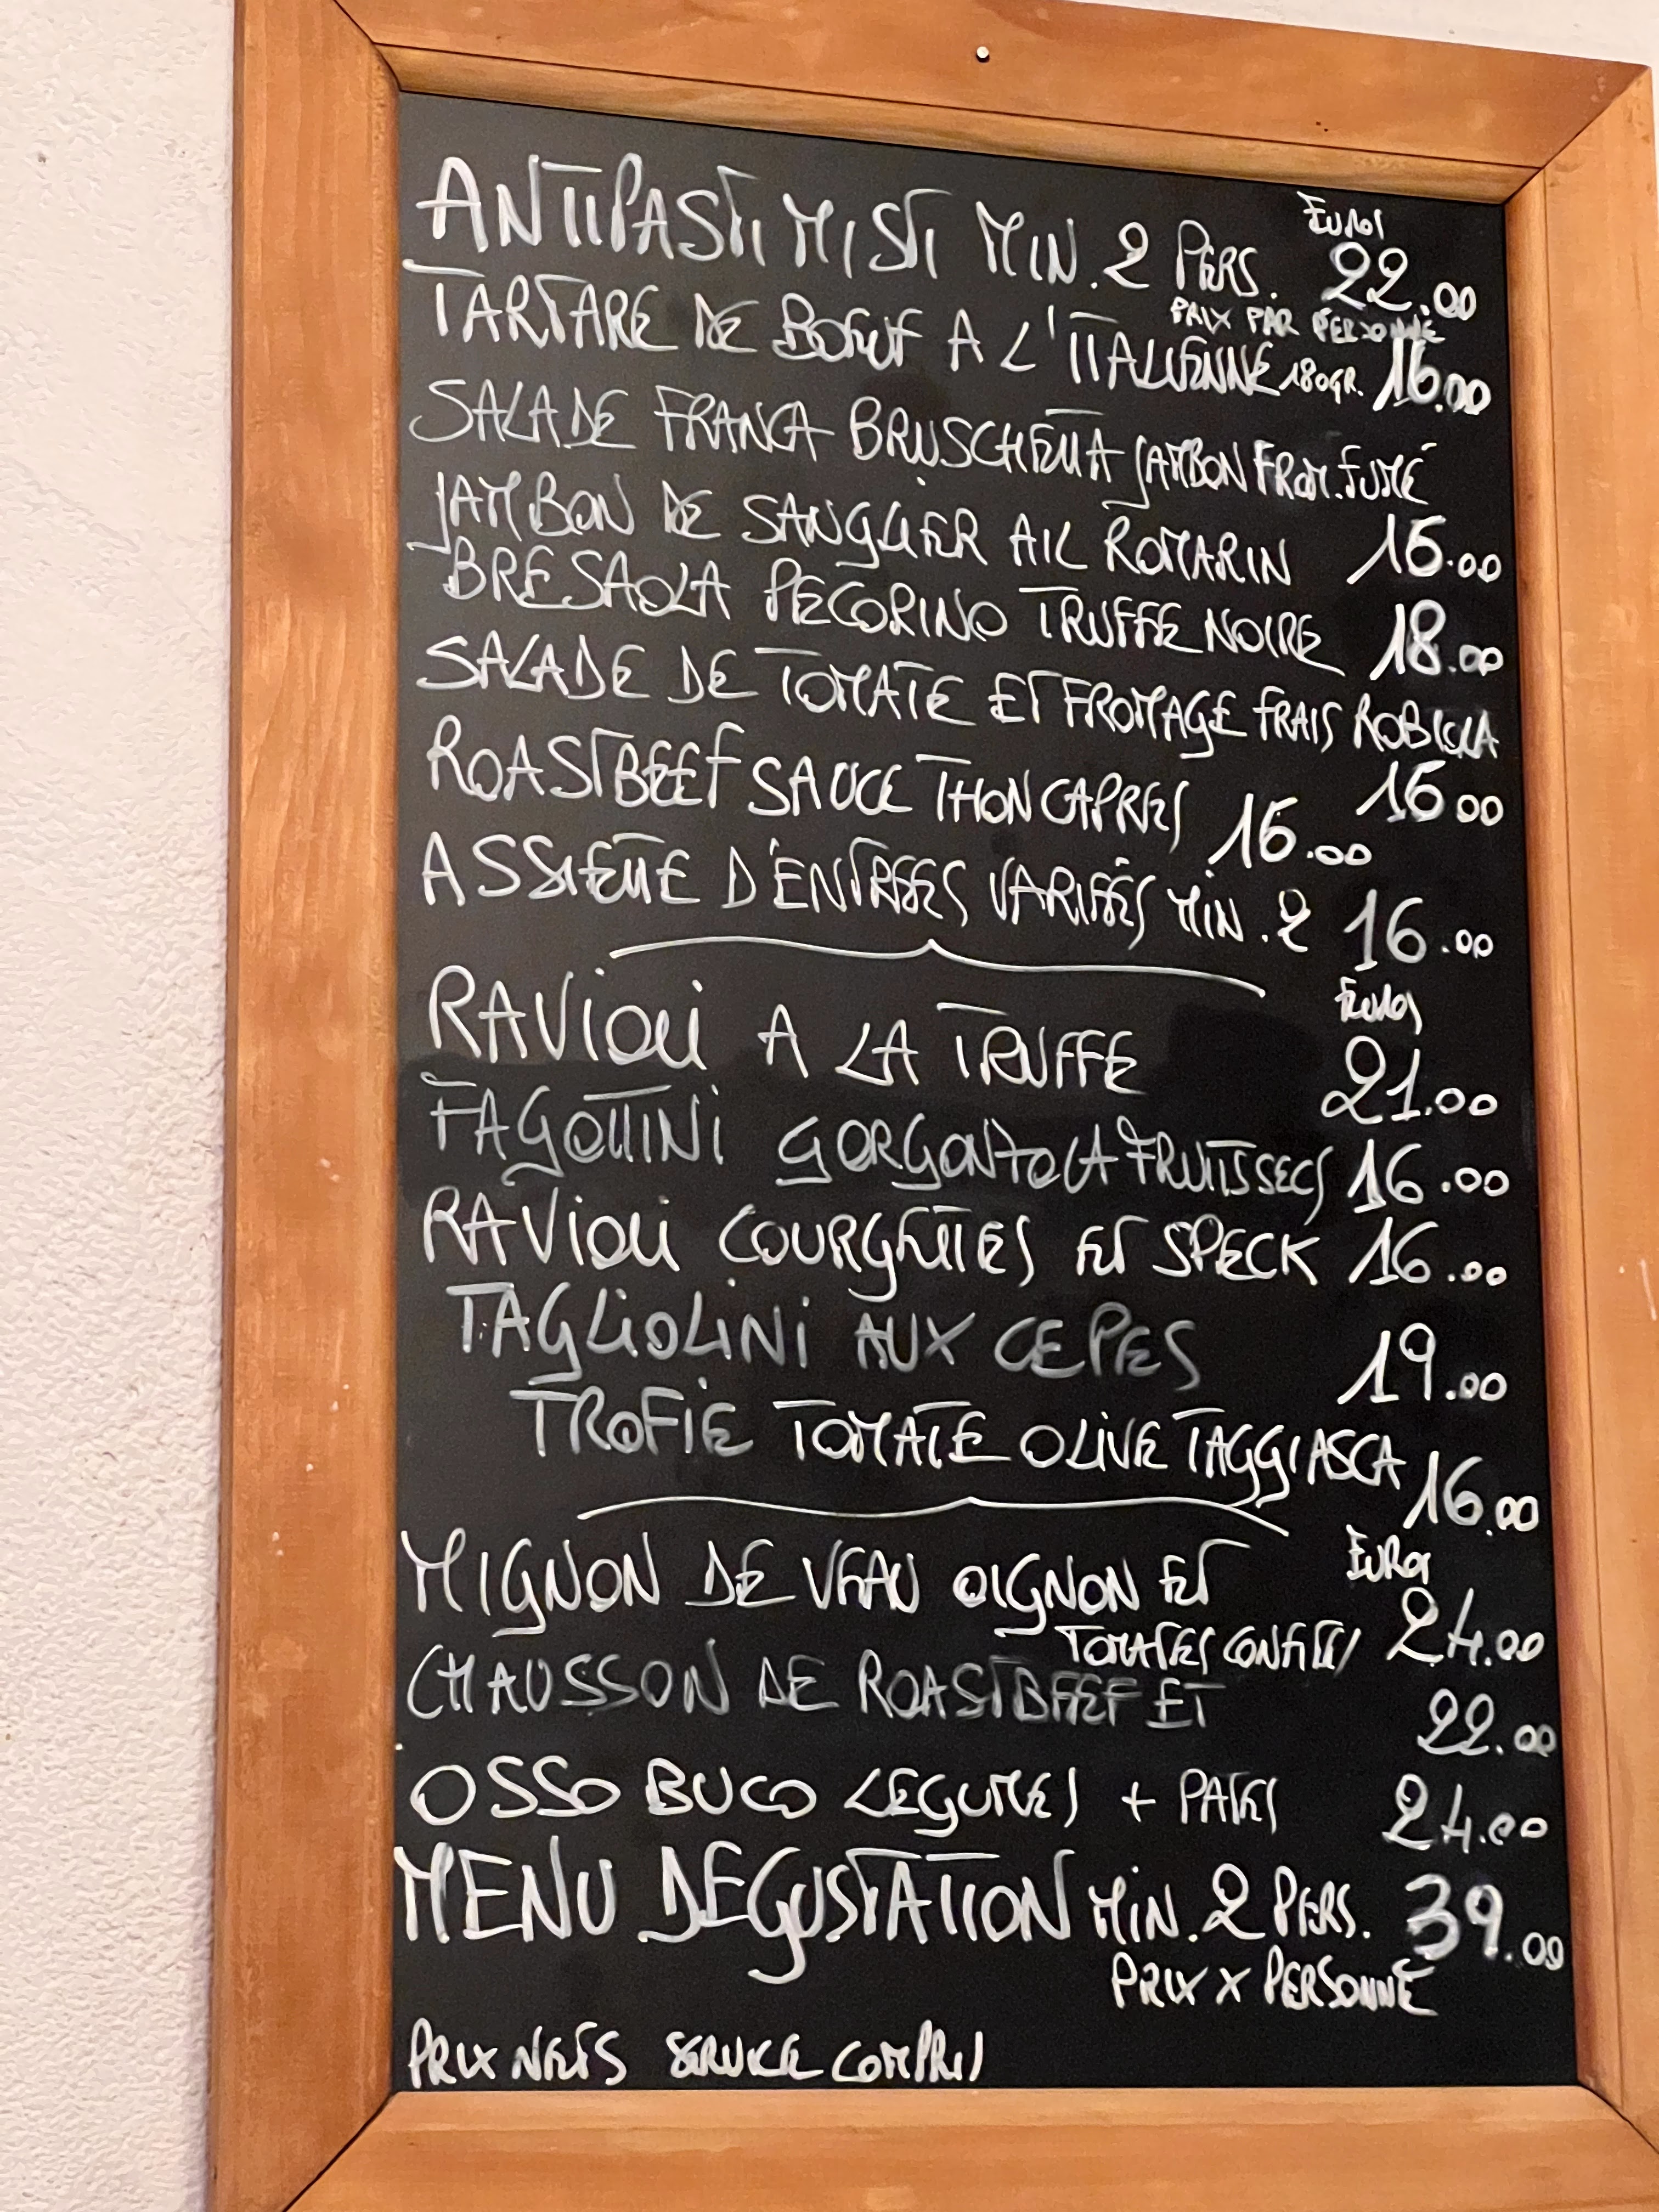 ANTIPASTI MISTI MIN. 2 PERS. Euros 22.00
PRIX PAR PERSONNE
TARTARE DE BOEUF A L'ITALIENNE 180GR. 16.00
SALADE FRANCA BRUSCHETTA JAMBON FROM. FUMÉ
JAMBON DE SANGLIER AIL ROMARIN 16.00
BRESAOLA PECORINO TRUFFE NOIRE 18.00
SALADE DE TOMATE ET FROMAGE FRAIS ROBIOLA
16.00
ROASTBEEF SAUCE THON CAPRES 16.00
ASSIETTE D'ENTREES VARIÉES MIN. 2 16.00
Euros
RAVIOLI A LA TRUFFE 21.00
FAGOTTINI GORGONZOLA FRUITS SECS 16.00
RAVIOLI COURGETTES ET SPECK 16.00
TAGLIOLINI AUX CEPES 19.00
TROFIE TOMATE OLIVE TAGGIASCA 16.00
Euros
MIGNON DE VEAU OIGNON ET
TOMATES CONFITES 24.00
CHAUSSON DE ROASTBEEF ET 22.00
OSSO BUCO LEGUMES + PATES 24.00
MENU DEGUSTATION MIN. 2 PERS. 39.00
PRIX X PERSONNE
PRIX NETS SERVICE COMPRIS